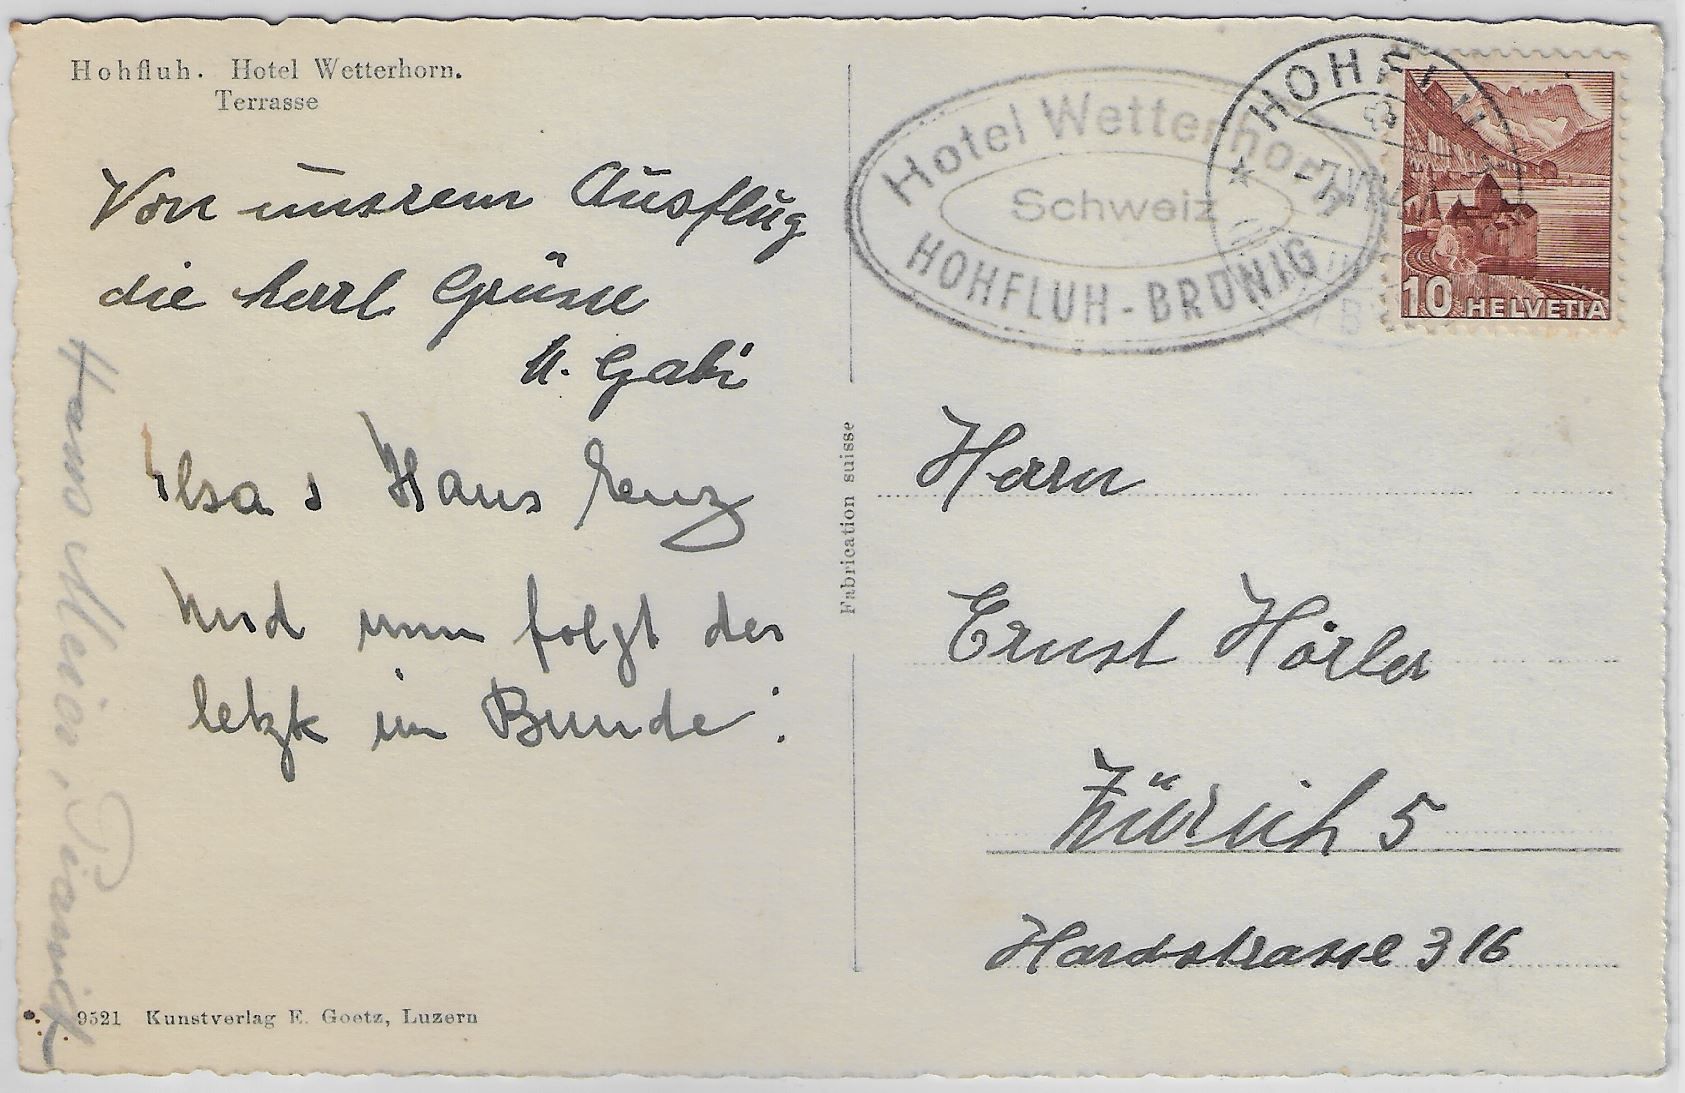 Hohfluh. Hotel Wetterhorn.
Terrasse
Von unsrem Ausflug
die herzl Grüsse
u. Gabi
Elsa & Hans Lenz
Und nun folgt der
letzte im Bunde:
Hans Meier,
9521 Kunstverlag E. Goetz, Luzern
Fabrication suisse
Hotel Wetterhorn
Schweiz
HOHFLUH-BRÜNIG
HOHFLUH
10 HELVETIA
Herrn
Ernst Hörler
Zürich 5
Hardstrasse 316